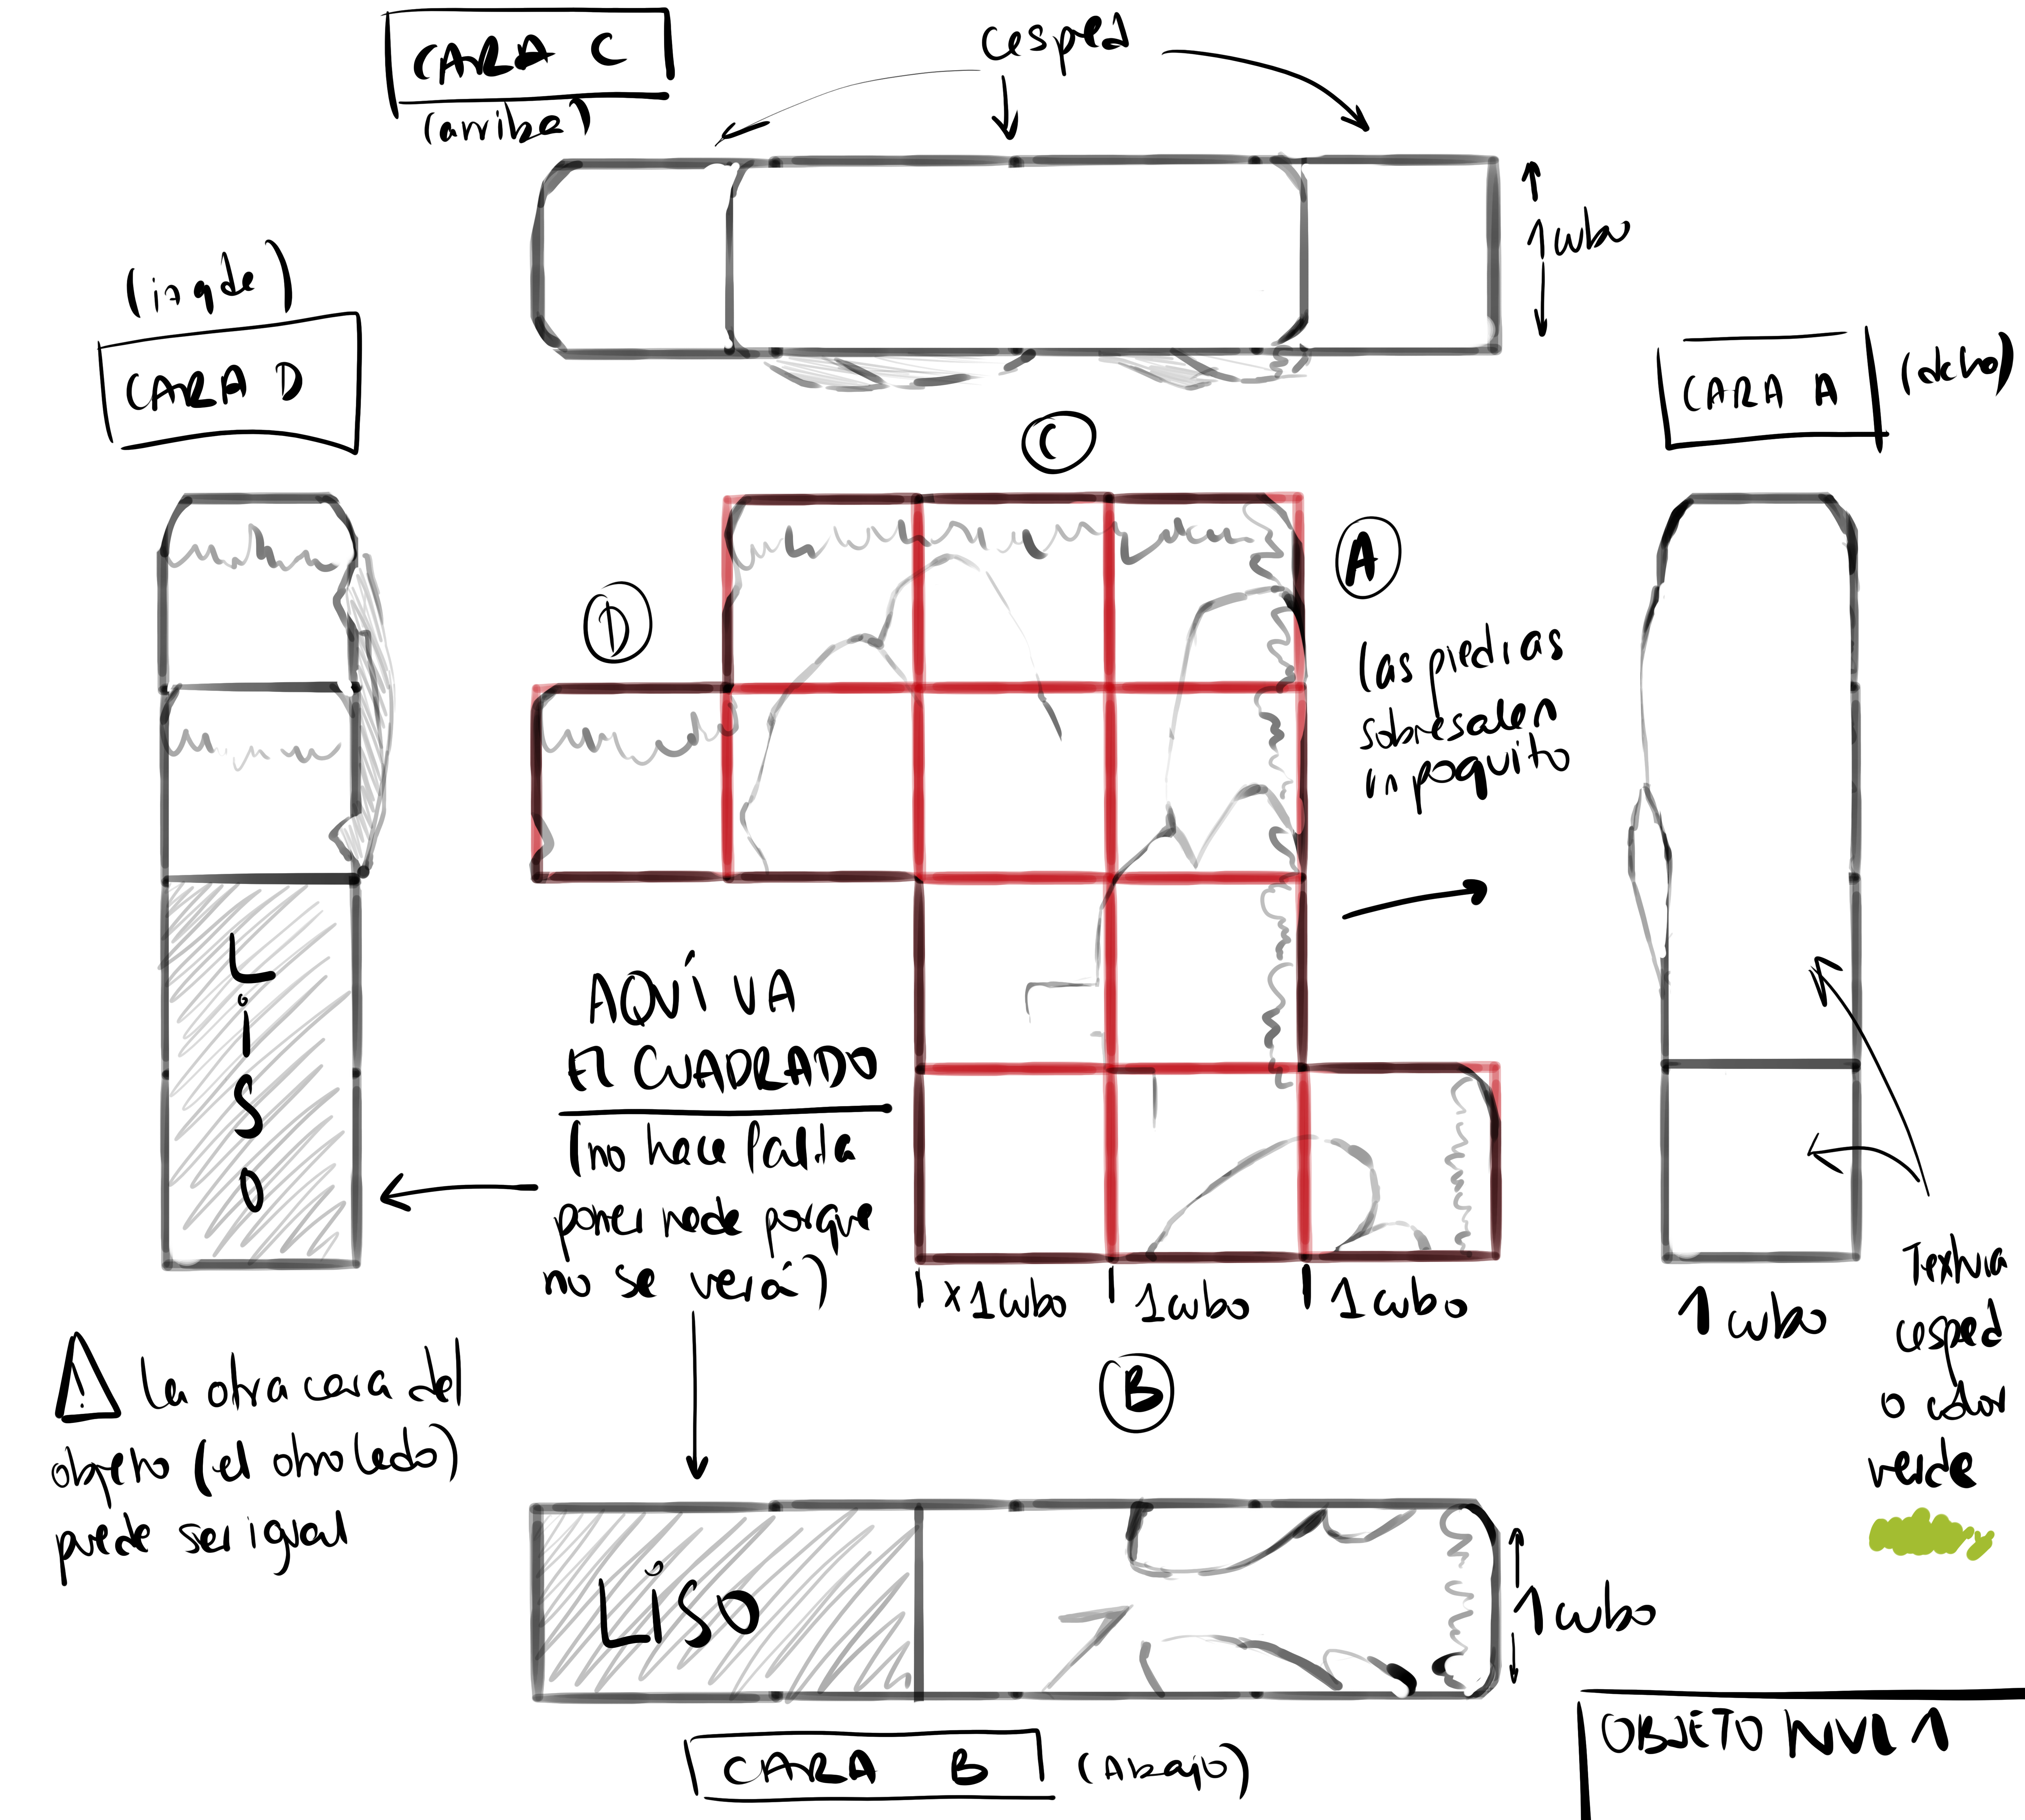 CARA C
(arriba)
cesped
1 cubo
(izqda)
CARA D
CARA A
(dcha)
C
A
D
las piedras
sobresalen
un poquito
AQUÍ VA
El CUADRADO
(no hace falta
poner nada porque
no se verá)
LiSO
x1 cubo
1 cubo
1 cubo
1 cubo
Textura
cesped
o color
verde
B
⚠ la otra cara del
objeto (el otro lado)
puede ser igual
LiSO
1 cubo
CARA B
(Abajo)
OBJETO NVL 1